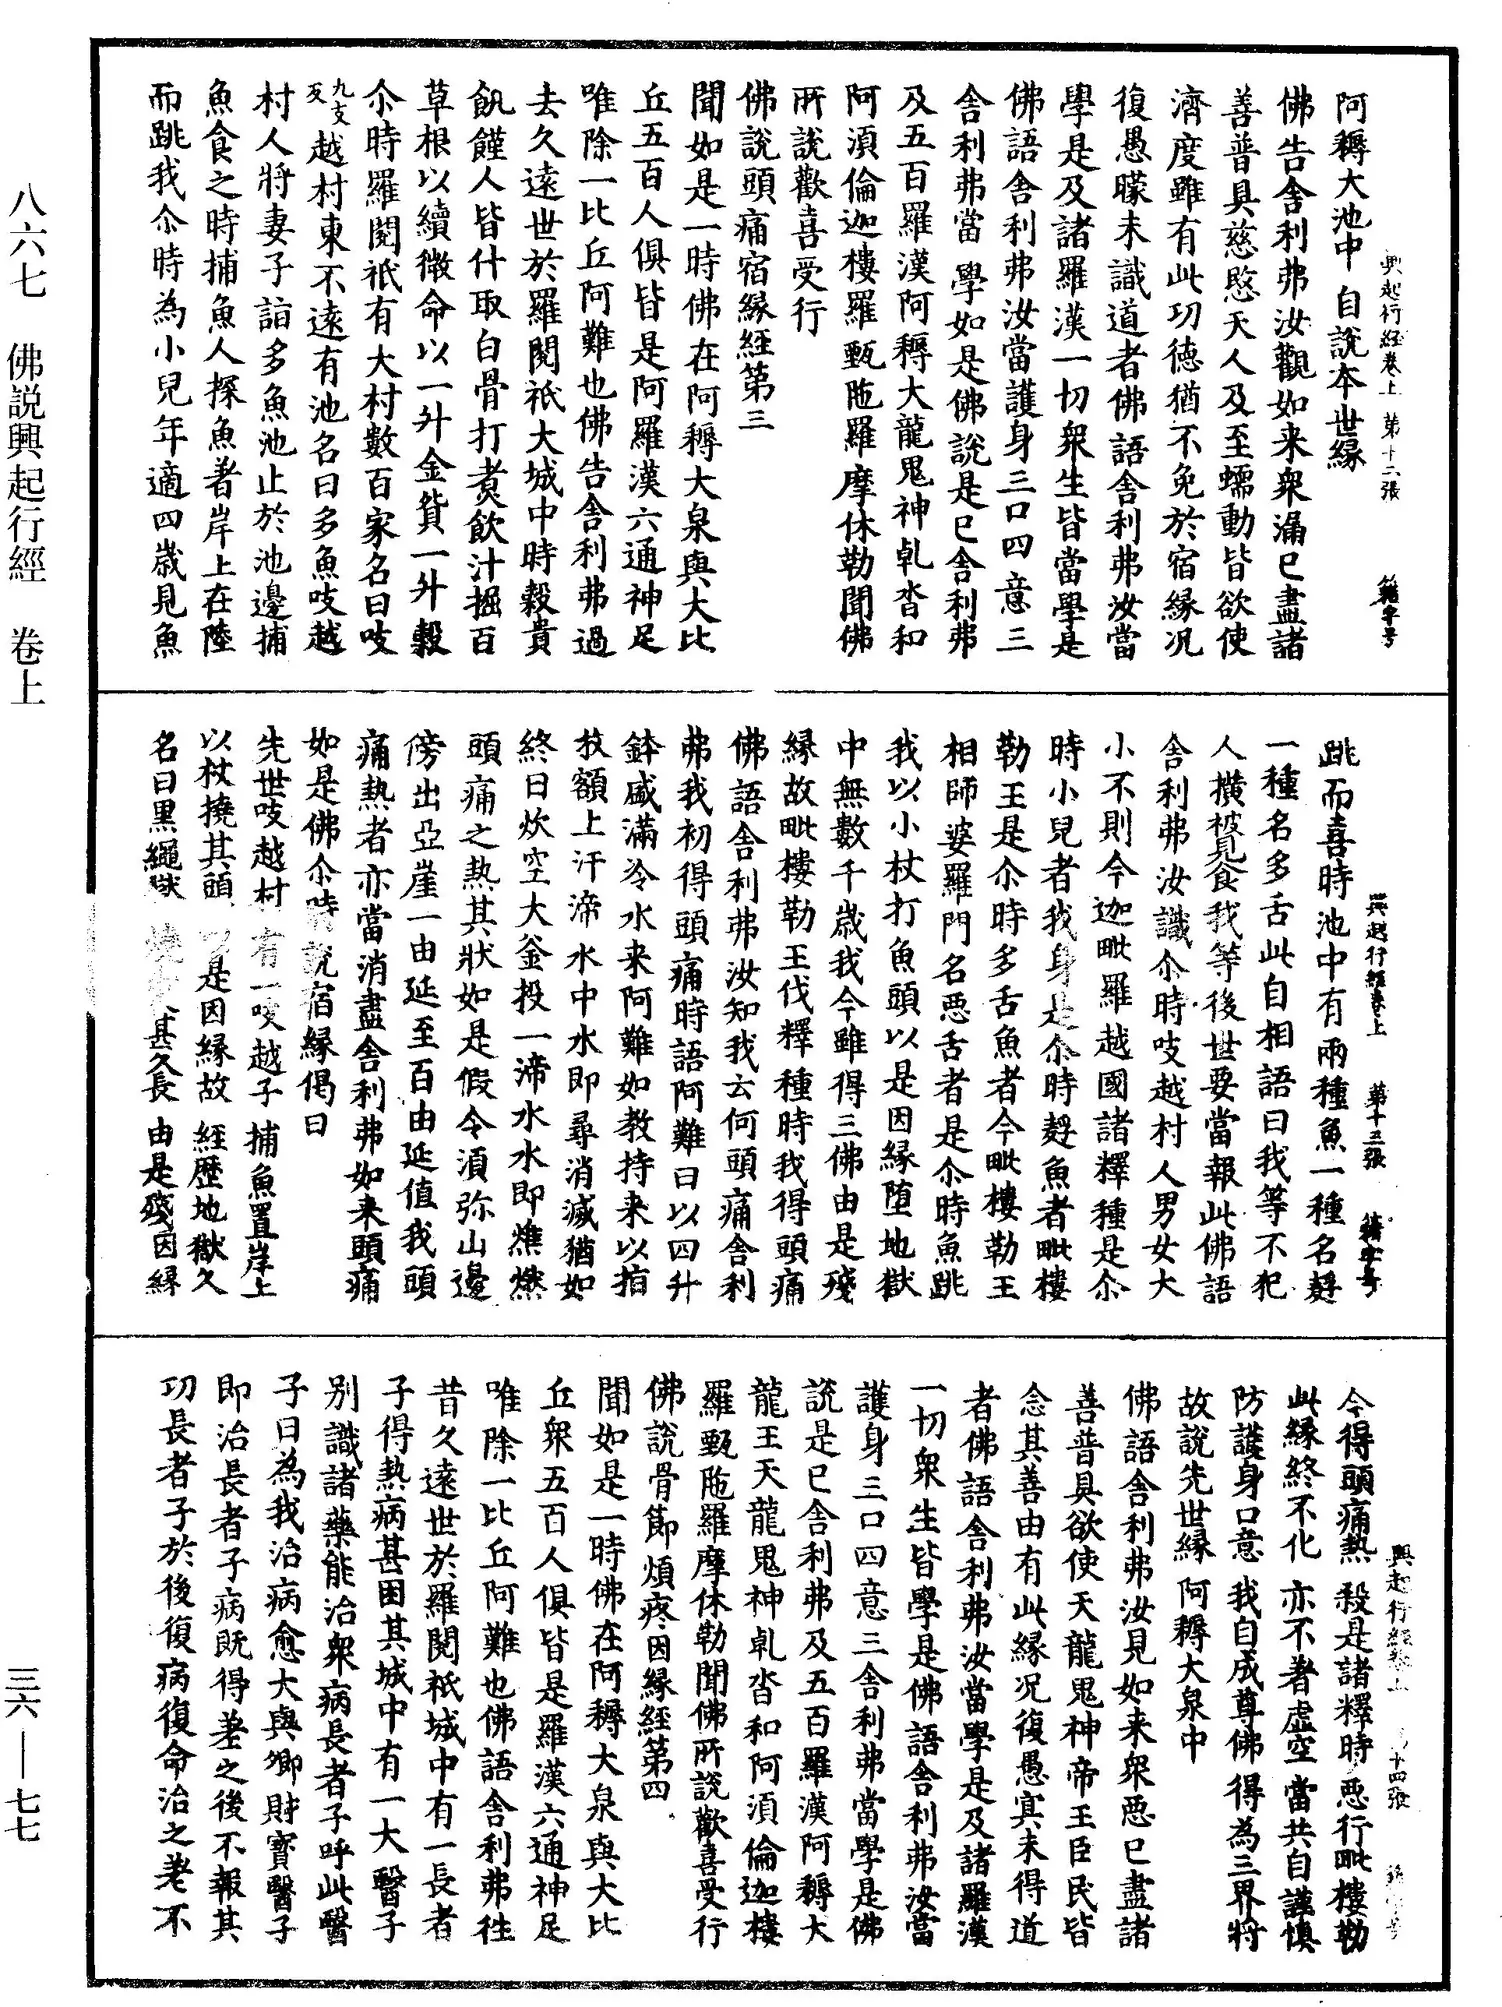 八六七　佛説興起行經　卷上
三六——七七
興起行經卷上　第十二張　籍字号
阿耨大池中　自說本世緣
佛告舍利弗汝觀如来衆漏已盡諸
善普具慈愍天人及至蠕動皆欲使
濟度雖有此功德猶不免於宿緣况
復愚曚未識道者佛語舍利弗汝當
學是及諸羅漢一切衆生皆當學是
佛語舍利弗汝當護身三口四意三
舍利弗當學如是佛說是已舍利弗
及五百羅漢阿耨大龍鬼神乹沓和
阿須倫迦樓羅甄陁羅摩休勒聞佛
所說歡喜受行
佛說頭痛宿緣經第三
聞如是一時佛在阿耨大泉與大比
丘五百人俱皆是阿羅漢六通神足
唯除一比丘阿難也佛告舍利弗過
去久遠世於羅閱祇大城中時穀貴
飢饉人皆什取白骨打煑飲汁掘百
草根以續微命以一升金貨一升穀
尒時羅閱祇有大村數百家名曰吱
九支反越村東不遠有池名曰多魚吱越
村人將妻子詣多魚池止於池邊捕
魚食之時捕魚人探魚著岸上在陸
而跳我尒時為小兒年適四歲見魚
興起行經卷上　第十三張　籍字号
跳而喜時池中有兩種魚一種名𪌘
一種名多舌此自相語曰我等不犯
人橫被見食我等後世要當報此佛語
舍利弗汝識尒時吱越村人男女大
小不則今迦毗羅越國諸釋種是尒
時小兒者我身是尒時𪌘魚者毗樓
勒王是尒時多舌魚者今毗樓勒王
相師婆羅門名惡舌者是尒時魚跳
我以小杖打魚頭以是因緣墮地獄
中無數千歲我今雖得三佛由是殘
緣故毗樓勒王伐釋種時我得頭痛
佛語舍利弗汝知我云何頭痛舍利
弗我初得頭痛時語阿難曰以四升
鉢盛滿冷水来阿難如教持来以指
抆額上汗渧水中水即尋消滅猶如
終日炊空大釜投一渧水水即燋燃
頭痛之熱其狀如是假令須弥山邊
傍出亞崖一由延至百由延值我頭
痛熱者亦當消盡舍利弗如来頭痛
如是佛尒時說宿緣偈曰
先世吱越村　有一吱越子　捕魚置岸上
以杖撓其頭　以是因緣故　經歷地獄久
名曰黑繩獄　燒　甚久長　由是殘因緣
興起行經卷上　十四張
今得頭痛熱　殺是諸釋時　惡行毗樓勒
此緣終不化　亦不著虛空　當共自謹慎
防護身口意　我自成尊佛　得為三界將
故說先世緣　阿耨大泉中
佛語舍利弗汝見如来衆惡已盡諸
善普具欲使天龍鬼神帝王臣民皆
念其善由有此緣况復愚冥未得道
者佛語舍利弗汝當學是及諸羅漢
一切衆生皆學是佛語舍利弗汝當
護身三口四意三舍利弗當學是佛
說是已舍利弗及五百羅漢阿耨大
龍王天龍鬼神乹沓和阿須倫迦樓
羅甄陁羅摩休勒聞佛所說歡喜受行
佛說骨節煩疼因緣經第四
聞如是一時佛在阿耨大泉與大比
丘衆五百人俱皆是羅漢六通神足
唯除一比丘阿難也佛語舍利弗往
昔久遠世於羅閱祇城中有一長者
子得熱病甚困其城中有一大醫子
別識諸藥能治衆病長者子呼此醫
子曰為我治病愈大與卿財寶醫子
即治長者子病既得差之後不報其
功長者子於後復病復命治之差不